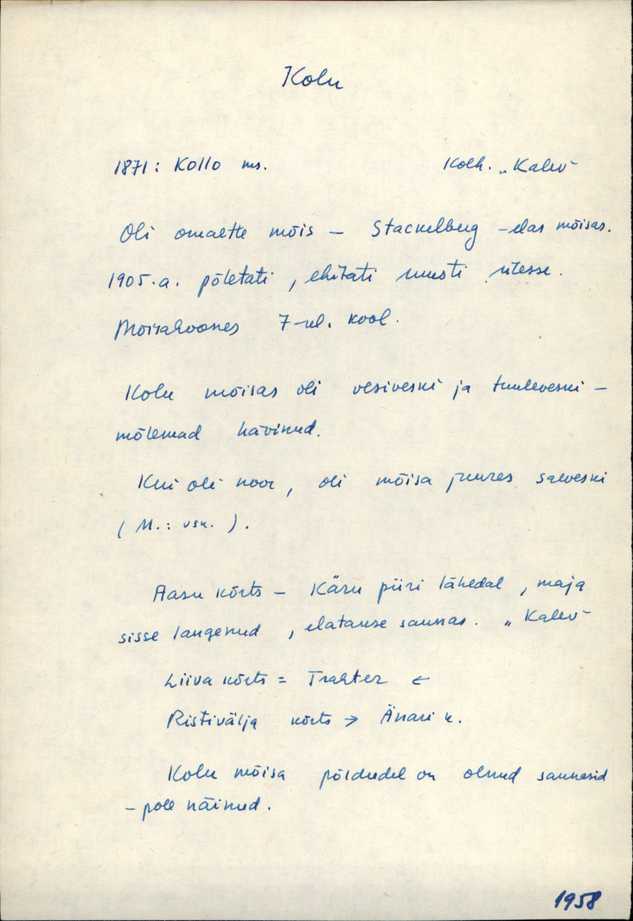 Kolu
1871: Kollo ms. Kolh. „Kalev"
Oli omaette mõis – Stackelberg – elas mõisas.
1905.a. põletati, ehitati uuesti ülesse.
Mõisahoones 7-kl. kool.
Kolu mõisas oli vesiveski ja tuuleveski –
mõlemad hävinud.
Kui oli noor, oli mõisa juures saeveski
(M.: vsk.).
Aasu kõrts – Käru piiri lähedal, maja
sisse langenud, elatakse saunas. „Kalev"
Liiva kõrts = Trahter ←
Ristivälja kõrts → Änari k.
Kolu mõisa põldudel on olnud saunasid
– pole näinud.
1958